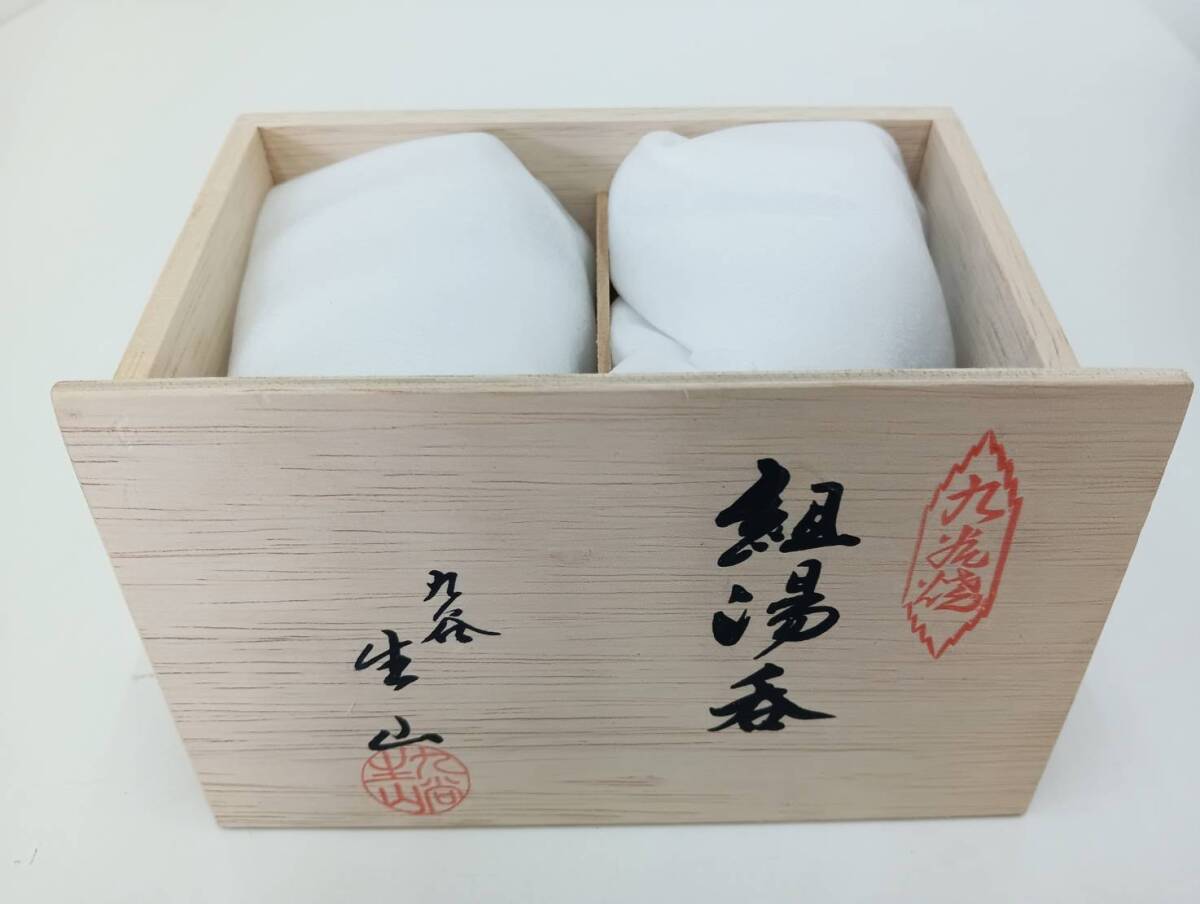 九谷焼
組湯呑
九谷
生山
九谷
生山